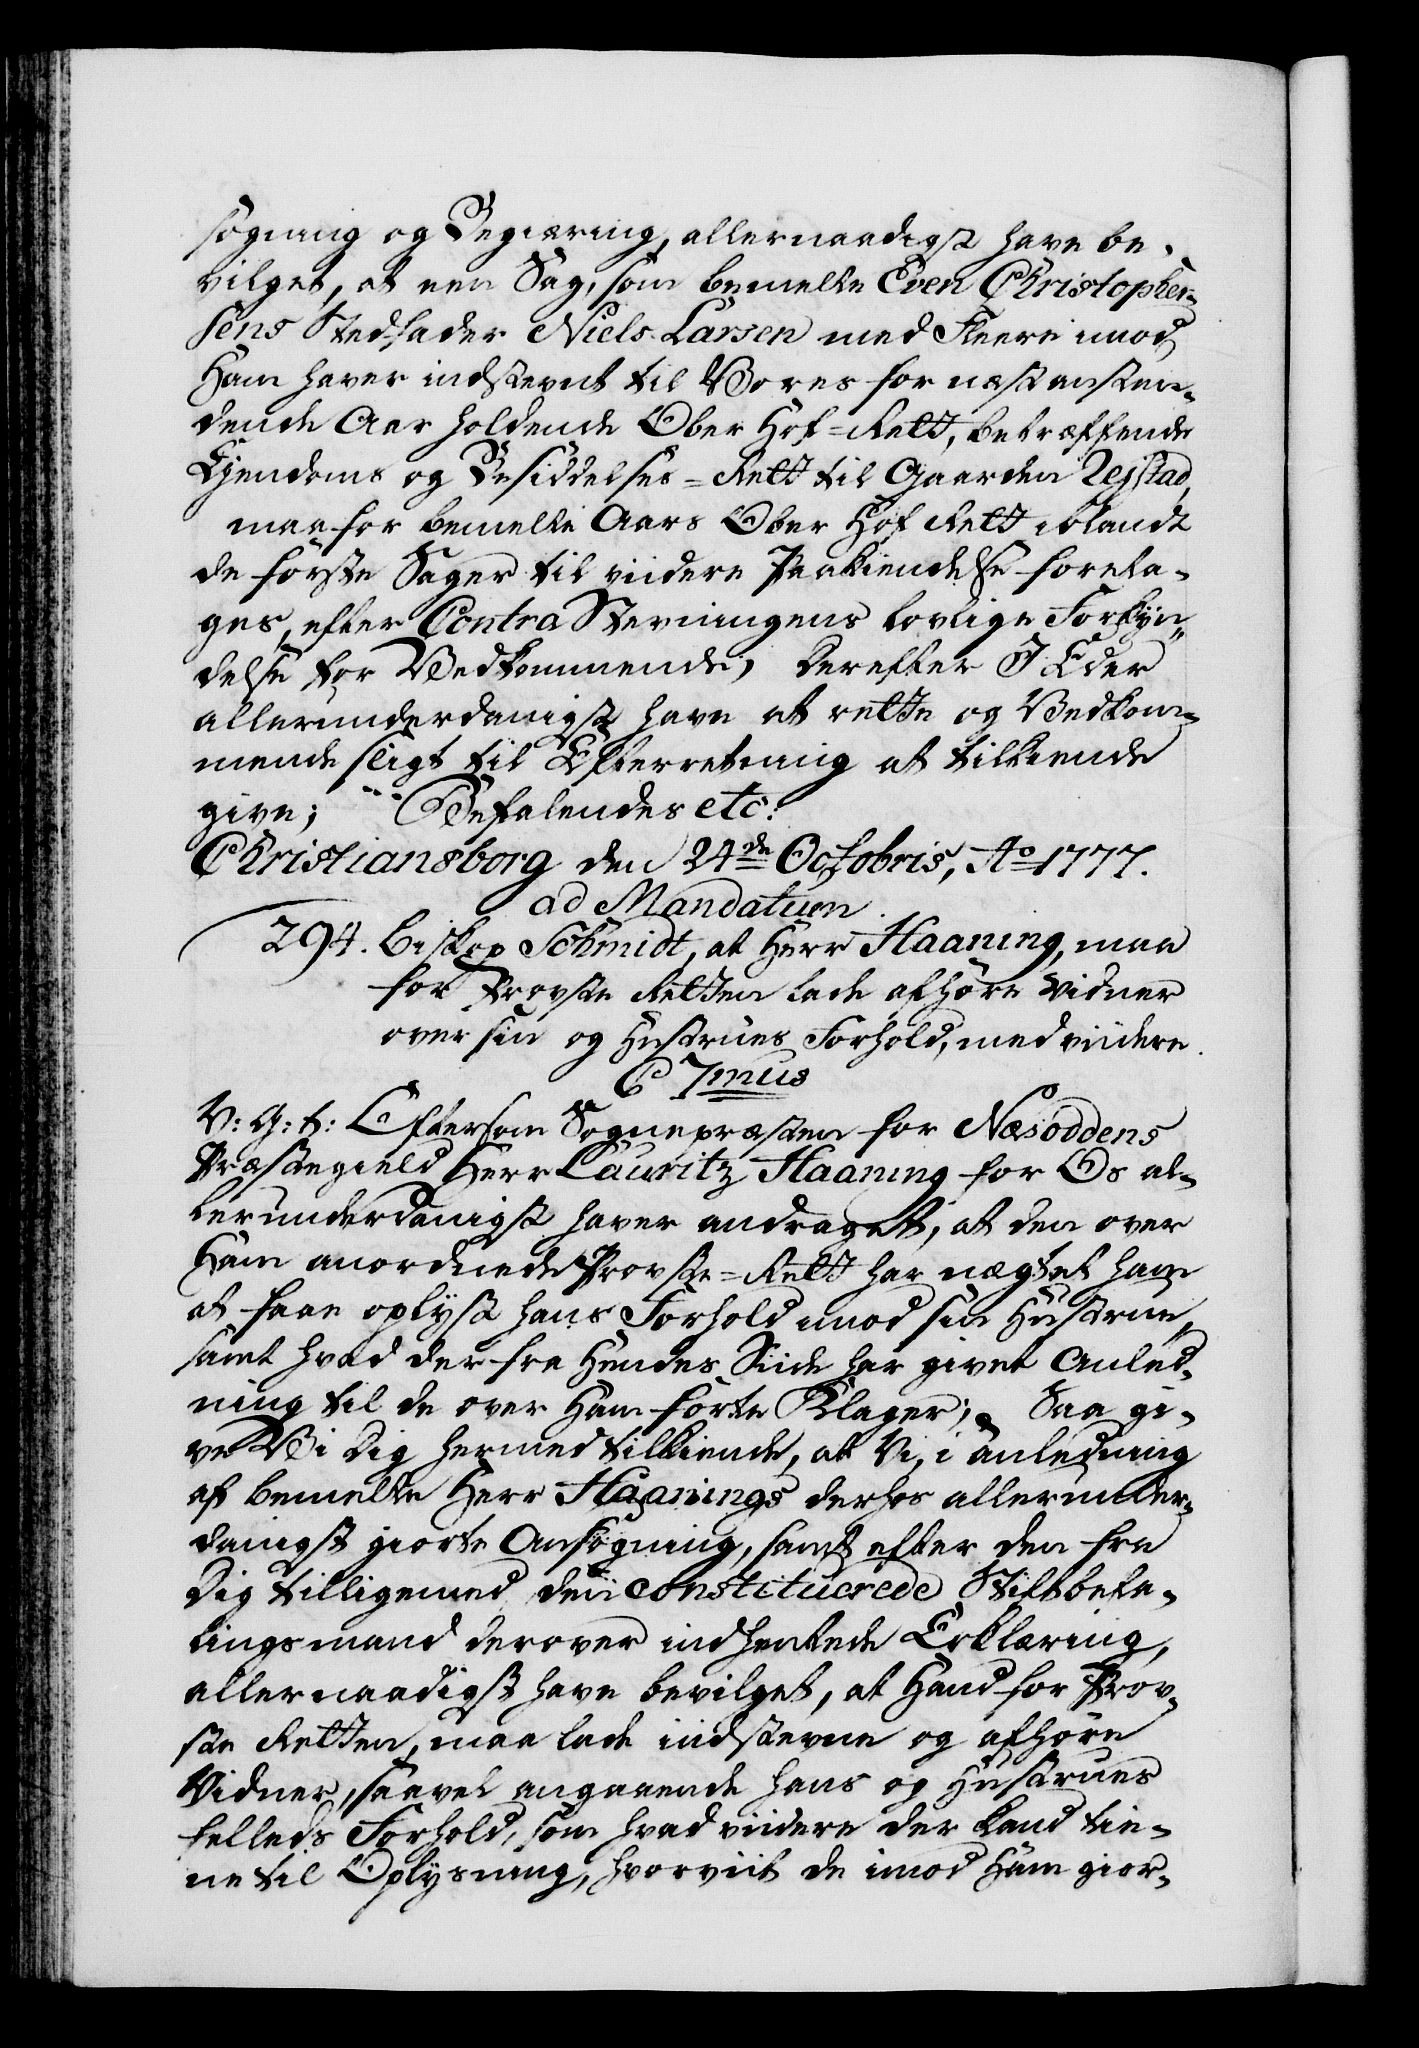 søgning og Begiæring, allernaadigst have be-
vilget, at een Sag, som bemelte Even Christopher-
sens Stedfader Niels Larsen med Fleere imod
Ham haver indstevnt til Vores for næstansten-
dende Aar holdende Ober Hof-Rett, betræffende
Ejendoms og Besiddelses-Rett til Gaarden Rejstad,
maa for bemelte Aars Ober Hof Rett iblandt
de første Sager til viidere Paakiendelse foreta-
ges, efter Contra Stevningens lovlige Forkyn-
delse for Vedkommende; Derefter I Eder
allerunderdanigst have at rette og Vedkom-
mende sligt til Efterretning at tilkiende
give; Befalendes etc:
Christiansborg den 24de Octobris, Ao 1777.
ad Mandatum.
294. Biskop Schmidt, at Herr Haaning, maa
for Provste Retten lade afhøre Vidner
over sin og Hustrues Forhold, med viidere.
C 7mus
V: G: t: Eftersom Sognepræsten for Næsoddens
Præstegield Herr Lauritz Haaning for Os al-
lerunderdanigst haver andraget, at den over
Ham anordnede Provste-Rett har nægtet ham
at faae oplyst hans Forhold imod sin Hustrue,
samt hvad der fra Hendes Siide har givet Anled-
ning til de over Ham førte Klager; Saa gi-
ve Vi Dig hermed tilkiende, at Vi, i anledning
af bemelte Herr Haanings derhos allerunder-
danigst giorte Ansøgning, samt efter den fra
Dig tilligemed den constituerede Stiftbefa-
lingsmand derover indhentede Erklæring,
allernaadigst have bevilget, at Hand for Prov-
ste Retten, maa lade indstevne og afhøre
Vidner, saavel angaaende hans og Hustrues
felleds Forhold, som hvad viidere der kand tie-
ne til Oplysning, hvorviit de imod Ham gior-